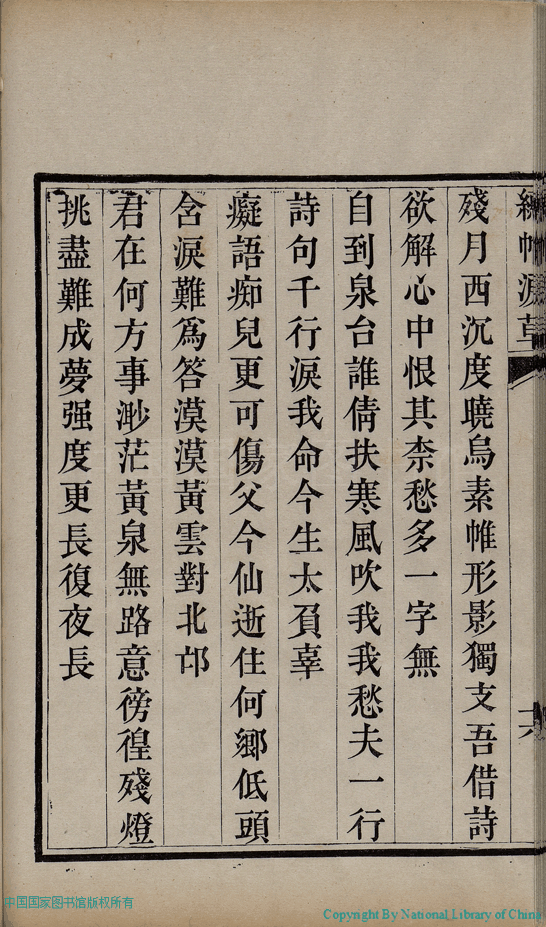 殘月西沉度曉烏素帷形影獨支吾借詩
欲解心中恨其柰愁多一字無
自到泉台誰倩扶寒風吹我我愁夫一行
詩句千行淚我命今生太負辜
癡語痴兒更可傷父今仙逝住何鄉低頭
含淚難為答漠漠黃雲對北邙
君在何方事渺茫黃泉無路意徬徨殘燈
挑盡難成夢强度更長復夜長
中国国家图书馆版权所有
Copyright By National Library of China